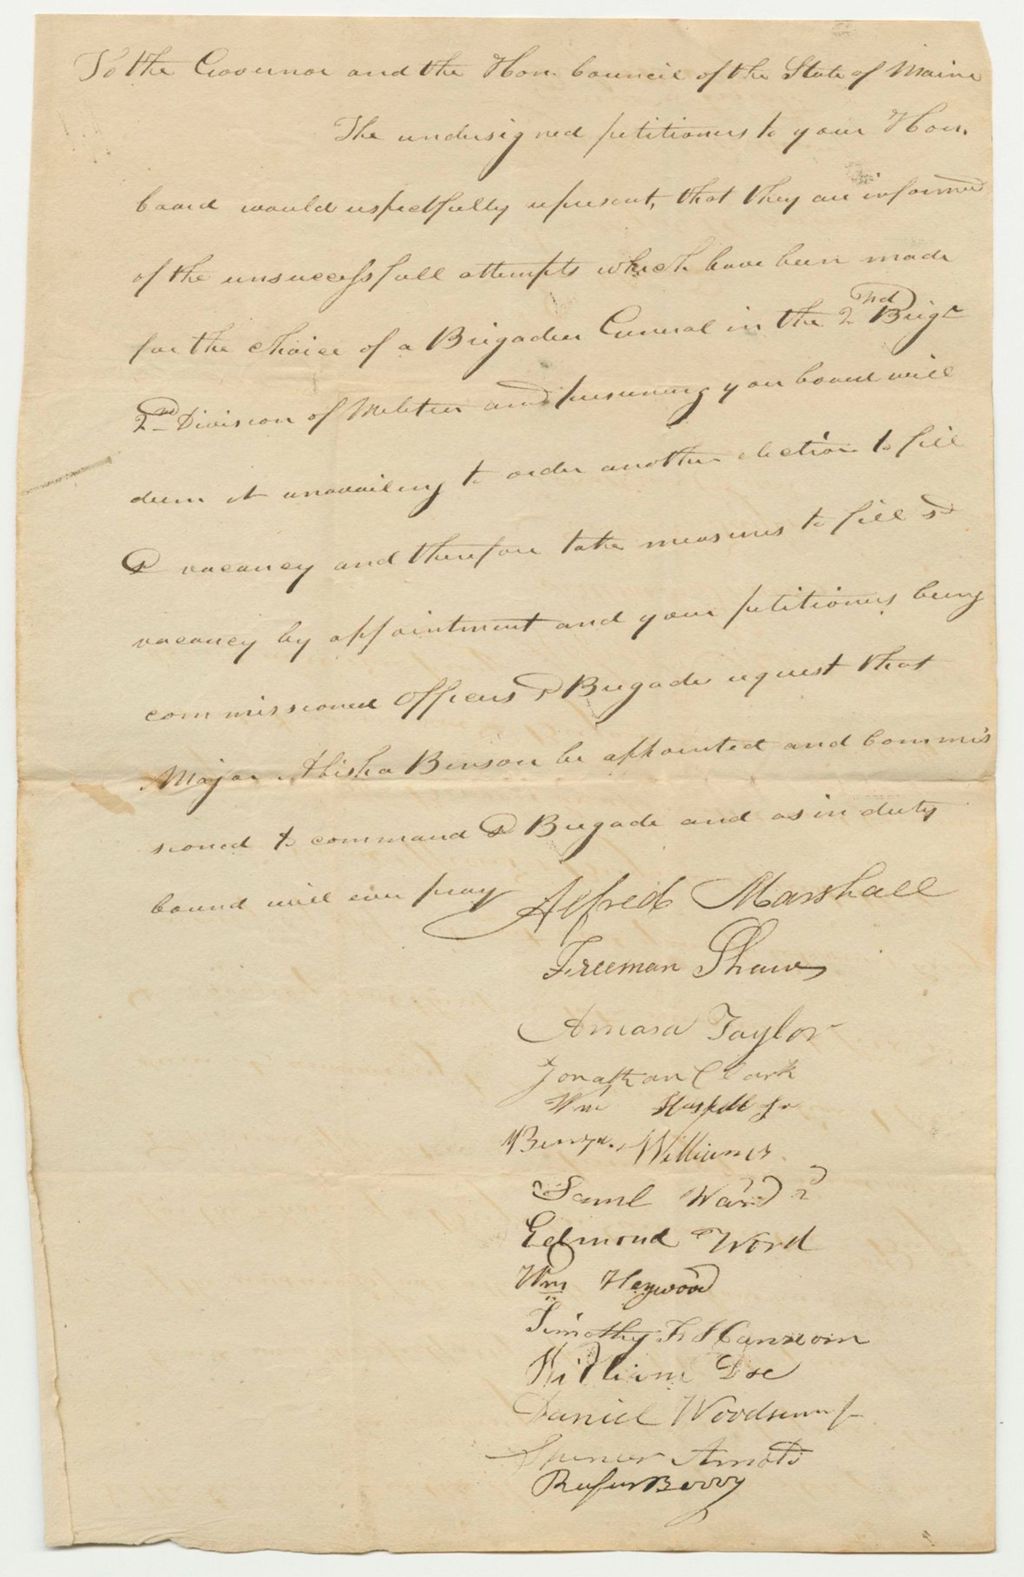 To the Governor and the Hon. Council of the State of Maine
The undersigned petitioners to your Hon.
board would respectfully represent, that they are informed
of the unsuccessfull attempts which have been made
for the choice of a Brigadier General in the 2nd Brige
2nd Division of Militia and presuming your board will
deem it unavailing to order another election to fill
sd vacancy and therefore take measures to fill sd
vacancy by appointment and your petitioners being
commissioned officers sd Brigade request that
Major Abisha Benson be appointed and commis
sioned to command sd Brigade and as in duty
bound will ever pray
Alfred Marshall
Freeman Shaw
Amasa Taylor
Jonathan Clark
Wm Haskell Jr
Benja. Williams
Saml Ward 2d
Edmond Word
Wm Heywood
Timothy F Hanscom
William Doe
Daniel Woodsum Jr
Spencer Arnold
Rufus Berry